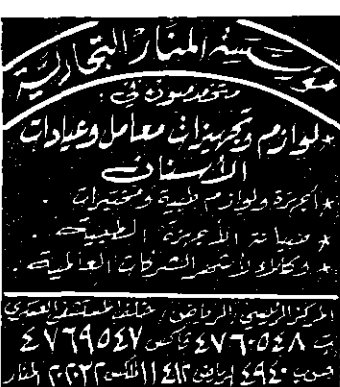 مؤسسة المنار التجارية
متخصصون في :
* لوازم وتجهيزات معامل وعيادات
الأسنان
* أجهزة ولوازم طبية ومختبرات .
* صيانة الأجهزة الطبية .
* وكلاء لأشهر الشركات العالمية .
المركز الرئيسي : الرياض / خلف مستشفى العسكري
ت ٤٧٦٠٥٤٨ فاكس ٤٧٦٩٥٤٧
ص.ب ٤٩٤٠ الرياض ١١٤١٢ تلكس ٢٠٢٠٢٢ المنار